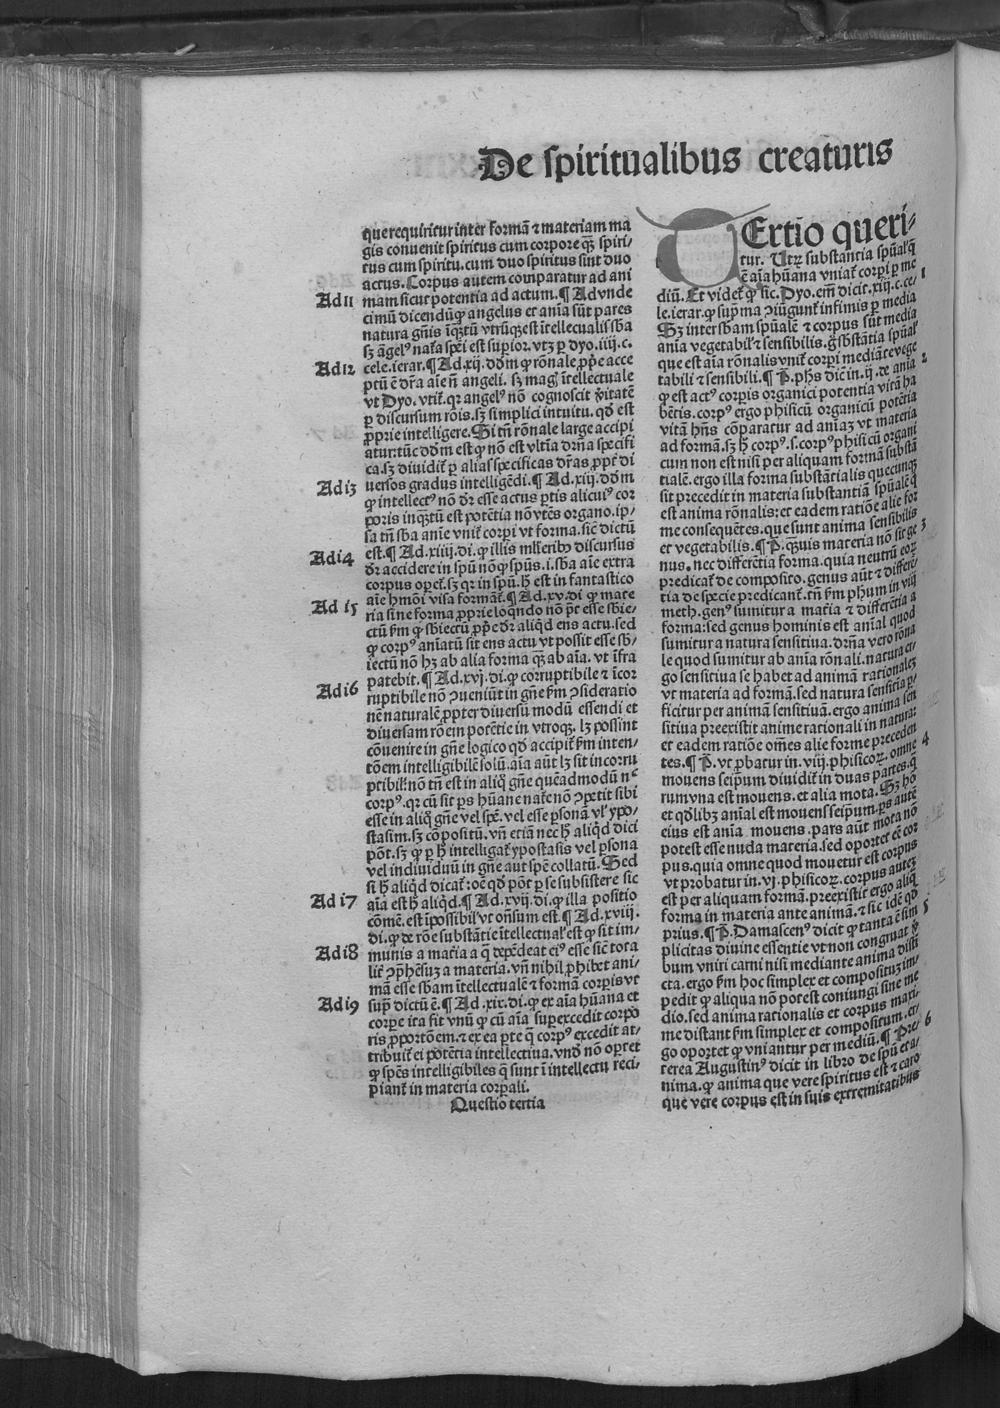 De spiritualibus creaturis
que requiritur inter formã ⁊ materiam ma
gis conuenit spiritus cum corpore qꝫ̃ spiri-
tus cum spiritu. cum duo spiritus sint duo
actus. Corpus autem comparatur ad ani
Ad 11 mam sicut potentia ad actum. ¶ Ad vnde
cimũ dicendũ ꝙ angelus et anĩa sũt pares
natura gñis ĩqꝫ̃tũ vtrũqꝫ est ĩtellectualis sb̃a
sꝫ ãgelꝰ nat̃a spẽi est supior. vtꝫ p dyo. iiij. c.
Ad 12 cele. ierar. ¶ Ad. xij. dd̃m ꝙ rõnale ꝓp̃e acce
ptũ ẽ dr̃a aĩe ñ angeli. sꝫ magꝭ ĩtellectuale
vt Dyo. vtit̃. qꝛ angelꝰ nõ cognoscit ṽitatẽ
ꝑ discursum rõis. sꝫ simplici intuitu. qd̃ est
ꝓprie intelligere. Si tñ rõnale large accipi
atur: tũc dd̃m est ꝙ nõ est vltĩa drñ̃a specifi
ca. sꝫ diuidit̃ ꝑ alias specificas dr̃as ꝓpt̃ di
Ad 13 uersos gradus intelligẽdi. ¶ Ad. xiij. dd̃m
ꝙ intellectꝰ nõ dr̃ esse actus ꝑtis alicuiꝰ cor
poris inqꝫ̃tũ est potẽtia nõ vtẽs organo. ip-
sa tñ sb̃a anĩe vnit̃ corpi vt forma. sic̃ dictũ
Ad 14 est. ¶ Ad. xiiij. di. ꝙ illis mĩerib̃ꝰ discursus
dr̃ accidere in spũ nõ ꝙ spũs. i. sb̃a aĩe extra
corpus opet̃. sꝫ qꝛ in spũ. h̃ est in fantastico
Ad 15 aĩe hmõi visa formãt̃. ¶ Ad. xv. di. ꝙ mate
ria sine forma ꝓprie loqñdo nõ pt̃ esse sbie-
ctũ fm̃ ꝙ sbiectũ ꝓp̃e dr̃ aliqd̃ ens actu. sed
ꝙ corpꝰ anĩatũ sit ens actu vt possit esse sb-
iectũ nõ hꝫ ab alia forma qꝫ̃ ab aĩa. vt ĩfra
Ad 16 patebit. ¶ Ad. xvj. di. ꝙ corruptibile ⁊ ĩcor
ruptibile nõ ꝯueniũt in gñe fm̃ ꝯsideratio
nẽ naturalẽ ꝓpter diuersũ modũ essendi et
diuersam rõem potẽtie in vtroqꝫ. lꝫ possint
cõuenire in gñe logico qd̃ accipit̃ fm̃ inten-
tõem intelligibilẽ solũ. aĩa aũt lꝫ sit incorru
ptibilꝭ nõ tñ est in aliq̃ gñe quẽadmodũ nᶜ
corpꝰ. qꝛ cũ sit ꝑs hũane nat̃e nõ ꝯpetit sibi
esse in aliq̃ gñe vel spẽ. vel esse ꝑsonã vl̃ ypo-
stasim. sꝫ cõpositũ. vñ etiã nec h̃ aliqd̃ dici
põt. sꝫ ꝙ ꝑ h̃ intelligat̃ ypostasis vel ꝑsona
vel indiuiduũ in gñe aut spẽ collatũ. Sed
si h̃ aliqd̃ dicat̃: oẽ qd̃ põt ꝑ se subsistere sic
Ad 17 aĩa est h̃ aliqd̃. ¶ Ad. xvij. di. ꝙ illa positio
cõmẽ. est ĩpossibil̃ vt oñsum est. ¶ Ad. xviij.
di. ꝙ de rõe substãtie ĩtellectual̃ est ꝙ sit im-
Ad 18 munis a mat̃ia a q̃ depẽdeat eiꝰ esse sic̃ tota
lit̃ ꝯp̃hẽsuꝫ a materia. vñ nihil ꝓhibet ani-
mã esse sb̃am ĩtellectualẽ ⁊ formã corpis vt
Ad 19 supͣ dictũ ẽ. ¶ Ad. xix. di. ꝙ ex aĩa hũana et
corpe ita fit vnũ ꝙ cũ aĩa suꝑexcedit corpo
ris ꝓportõem. ⁊ ex ea parte q̃ corpꝰ excedit at-
tribuit̃ ei potẽtia intellectiua. vnd̃ nõ oꝑtet
ꝙ spẽs intelligibiles q̃ sunt ĩ intellectu reci-
piant̃ in materia corpali.
Questio tertia
TErtio queri-
tur. Utꝝ substantia spũal̃ q̃
ẽ aĩa hũana vniat̃ corpi ꝑ me
diũ. Et videt̃ ꝙ sic. Dyo. em̃ dicit. xiij. c. ce- 1
le. ierar. ꝙ sup̃ma ꝯiũgunt̃ infimis ꝑ media
Sꝫ inter sb̃am spũalẽ ⁊ corpus sũt media
anĩa vegetabil̃ ⁊ sensibilis. g̃ sb̃stãtia spũal̃
que est aĩa rõnalis vnit̃ corpi mediãte vege
tabili ⁊ sensibili. ¶ P̃. ph̃s dic̃ in. ij. de anĩa 2
ꝙ est actꝰ corpis organici potentia vitã ha
bẽtis. corpꝰ ergo phisicũ organicũ potẽtia
vitã hñs cõparatur ad anĩaꝫ vt materia
ad formã. sꝫ h̃ corpꝰ. s. corpꝰ phisicũ organi
cum non est nisi per aliquam formã substã
tialẽ. ergo illa forma substãtialis quecunqꝫ
sit precedit in materia substantiã spũalẽ q̃
est anima rõnalis: et eadem ratiõe alie for
me consequẽtes. que sunt anima sensibilis
et vegetabilis. ¶ P̃. qꝫ̃uis materia nõ sit ge 3
nus. nec differẽtia forma. quia neutrũ eoꝝ
predicat̃ de composito. genus aũt ⁊ differẽ
tia de specie predicant̃. tñ fm̃ phũm in viij
meth. genꝰ sumitur a mat̃ia ⁊ differẽtia a
forma: sed genus hominis est anĩal quod
sumitur a natura sensitiua. drñ̃a vero rõna
le quod sumitur ab anĩa rõnali. natura er-
go sensitiua se habet ad animã rationaleꝫ
vt materia ad formã. sed natura sensitia ꝑ-
ficitur per animã sensitiuã. ergo anima sen
sitiua preexistit anime rationali in naturaꝫ
et eadem ratiõe om̃es alie forme preceden
tes. ¶ P̃. vt ꝓbatur in. viij. phisicoꝝ. omne 4
mouens seip̃um diuidit̃ in duas partes. q̃
rum vna est mouens. et alia mota. Sꝫ hõ
et qd̃libꝫ anĩal est mouens seip̃um. ꝑs autẽ
eius est anĩa mouens. pars aũt mota nõ
potest esse nuda materia. sed oportet eẽ cor
pus. quia omne quod mouetur est corpus
vt probatur in. vj. phisicoꝝ. corpus auteꝫ
est per aliquam formã. preexistit ergo aliq̃
forma in materia ante animã. ⁊ sic idẽ qd̃
prius. ¶ P̃. Damascenꝰ dicit ꝙ tanta ẽ sim 5
plicitas diuine essentie vt non congruat ṽ
bum vniri carni nisi mediante anima disti
cta. ergo fm̃ hoc simplex et compositũ im-
pedit ꝙ aliqua nõ potest coniungi sine me
dio. sed anima rationalis et corpus maxi-
me distant fm̃ simplex et compositum. er-
go oportet ꝙ vniantur per mediũ. ¶ Pre- 6
terea Augustinꝰ dicit in libro de spũ et a-
nima. ꝙ anima que vere spiritus est ⁊ caro
que vere corpus est in suis extremitatibus